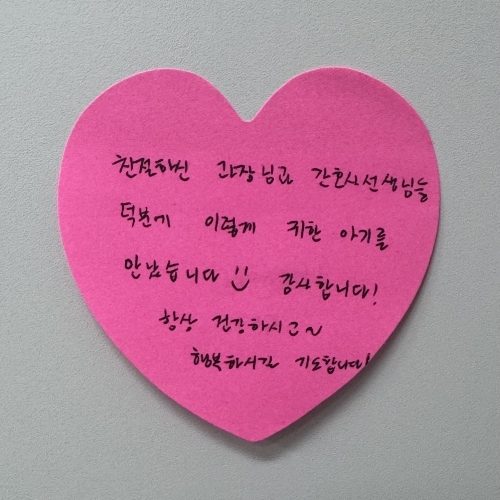 친절하신 과장님과 간호사선생님들
덕분에 이렇게 귀한 아기를
만났습니다 :) 감사합니다!
항상 건강하시고~
행복하시길 기도합니다!